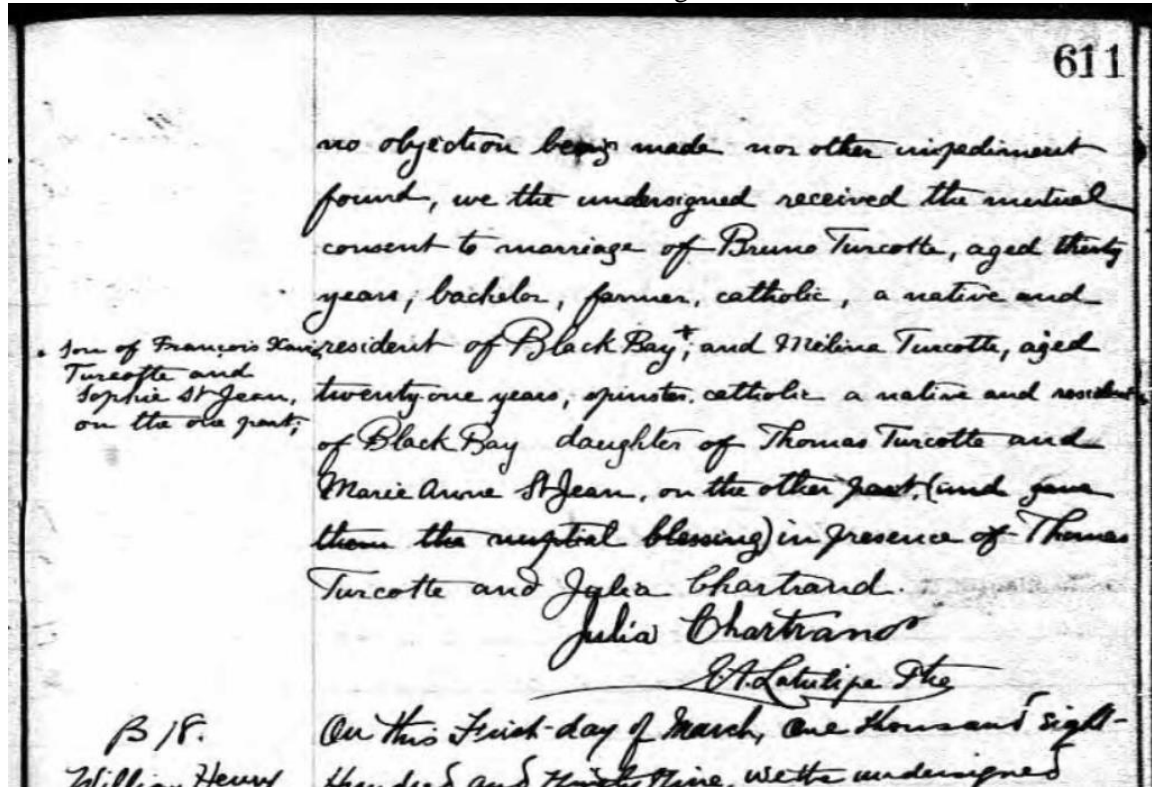 611
no objection being made nor other impediment
found, we the undersigned received the mutual
consent to marriage of Bruno Turcotte, aged thirty
years, bachelor, farmer, catholic, a native and
resident of Black Bay+; and Mélina Turcotte, aged
twenty-one years, spinster, catholic a native and resident
of Black Bay daughter of Thomas Turcotte and
Marie Anne St Jean, on the other part, (and gave
them the nuptial blessing) in presence of Thomas
Turcotte and Julia Chartrand.
Julia Chartrand
Latulipe Ptre
+ Son of François Xavier
Turcotte and
Sophie St Jean,
on the one part;
B 18.
William Henry
On this First day of March, One thousand Eight-
Hundred and Ninety Nine, we the undersigned